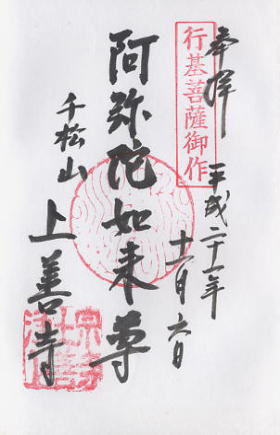 奉拝
平成二十一年
十一月六日
行基菩薩御作
阿弥陀如来尊
千松山
上善寺